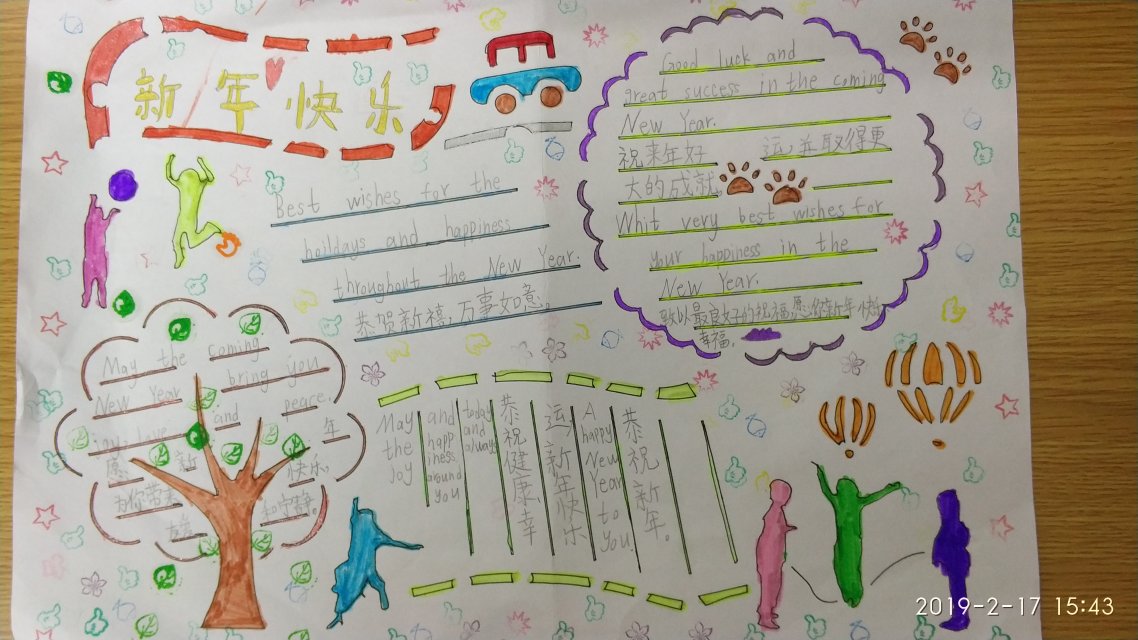 新年快乐
Good luck and
great success in the coming
New Year.
祝来年好 运,并取得更
大的成就.
Whit very best wishes for
your happiness in the
New Year.
致以最良好的祝福,愿你新年快乐
幸福.
Best wishes for the
hoildays and happiness
throughout the New Year.
恭贺新禧,万事如意。
May the coming
New Year bring you
joy, love and peace.
愿 新 年
为你带来 快乐,
和宁静。
May
the
Joy
and
happ
iness
around
you
today
and
always
恭祝健康幸
运,新年快乐
A
happy
New
Year
to
you.
恭祝新年。
2019-2-17 15:43